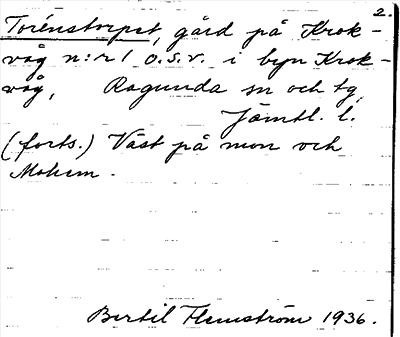 2.
Torénstorpet, gård på Krok-
våg n:r 1 o.s.v. i byn Krok-
våg, Ragunda sn och tg,
Jämtl. l.
(forts.) Väst på mon och
Mohem.
Bertil Flemström 1936.